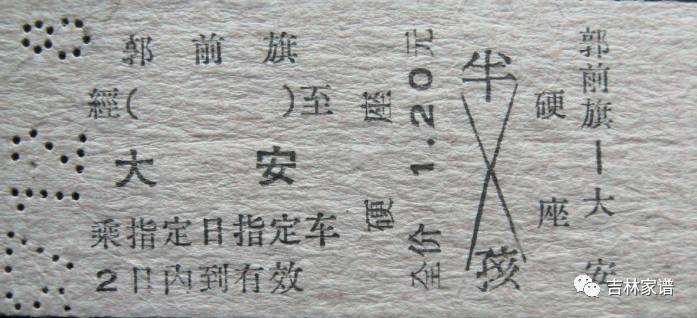 郭前旗
經( )至
大安
乘指定日指定车
2日内到有效
硬座
全价1.20元
半孩
硬座
郭前旗—大安
吉林家谱